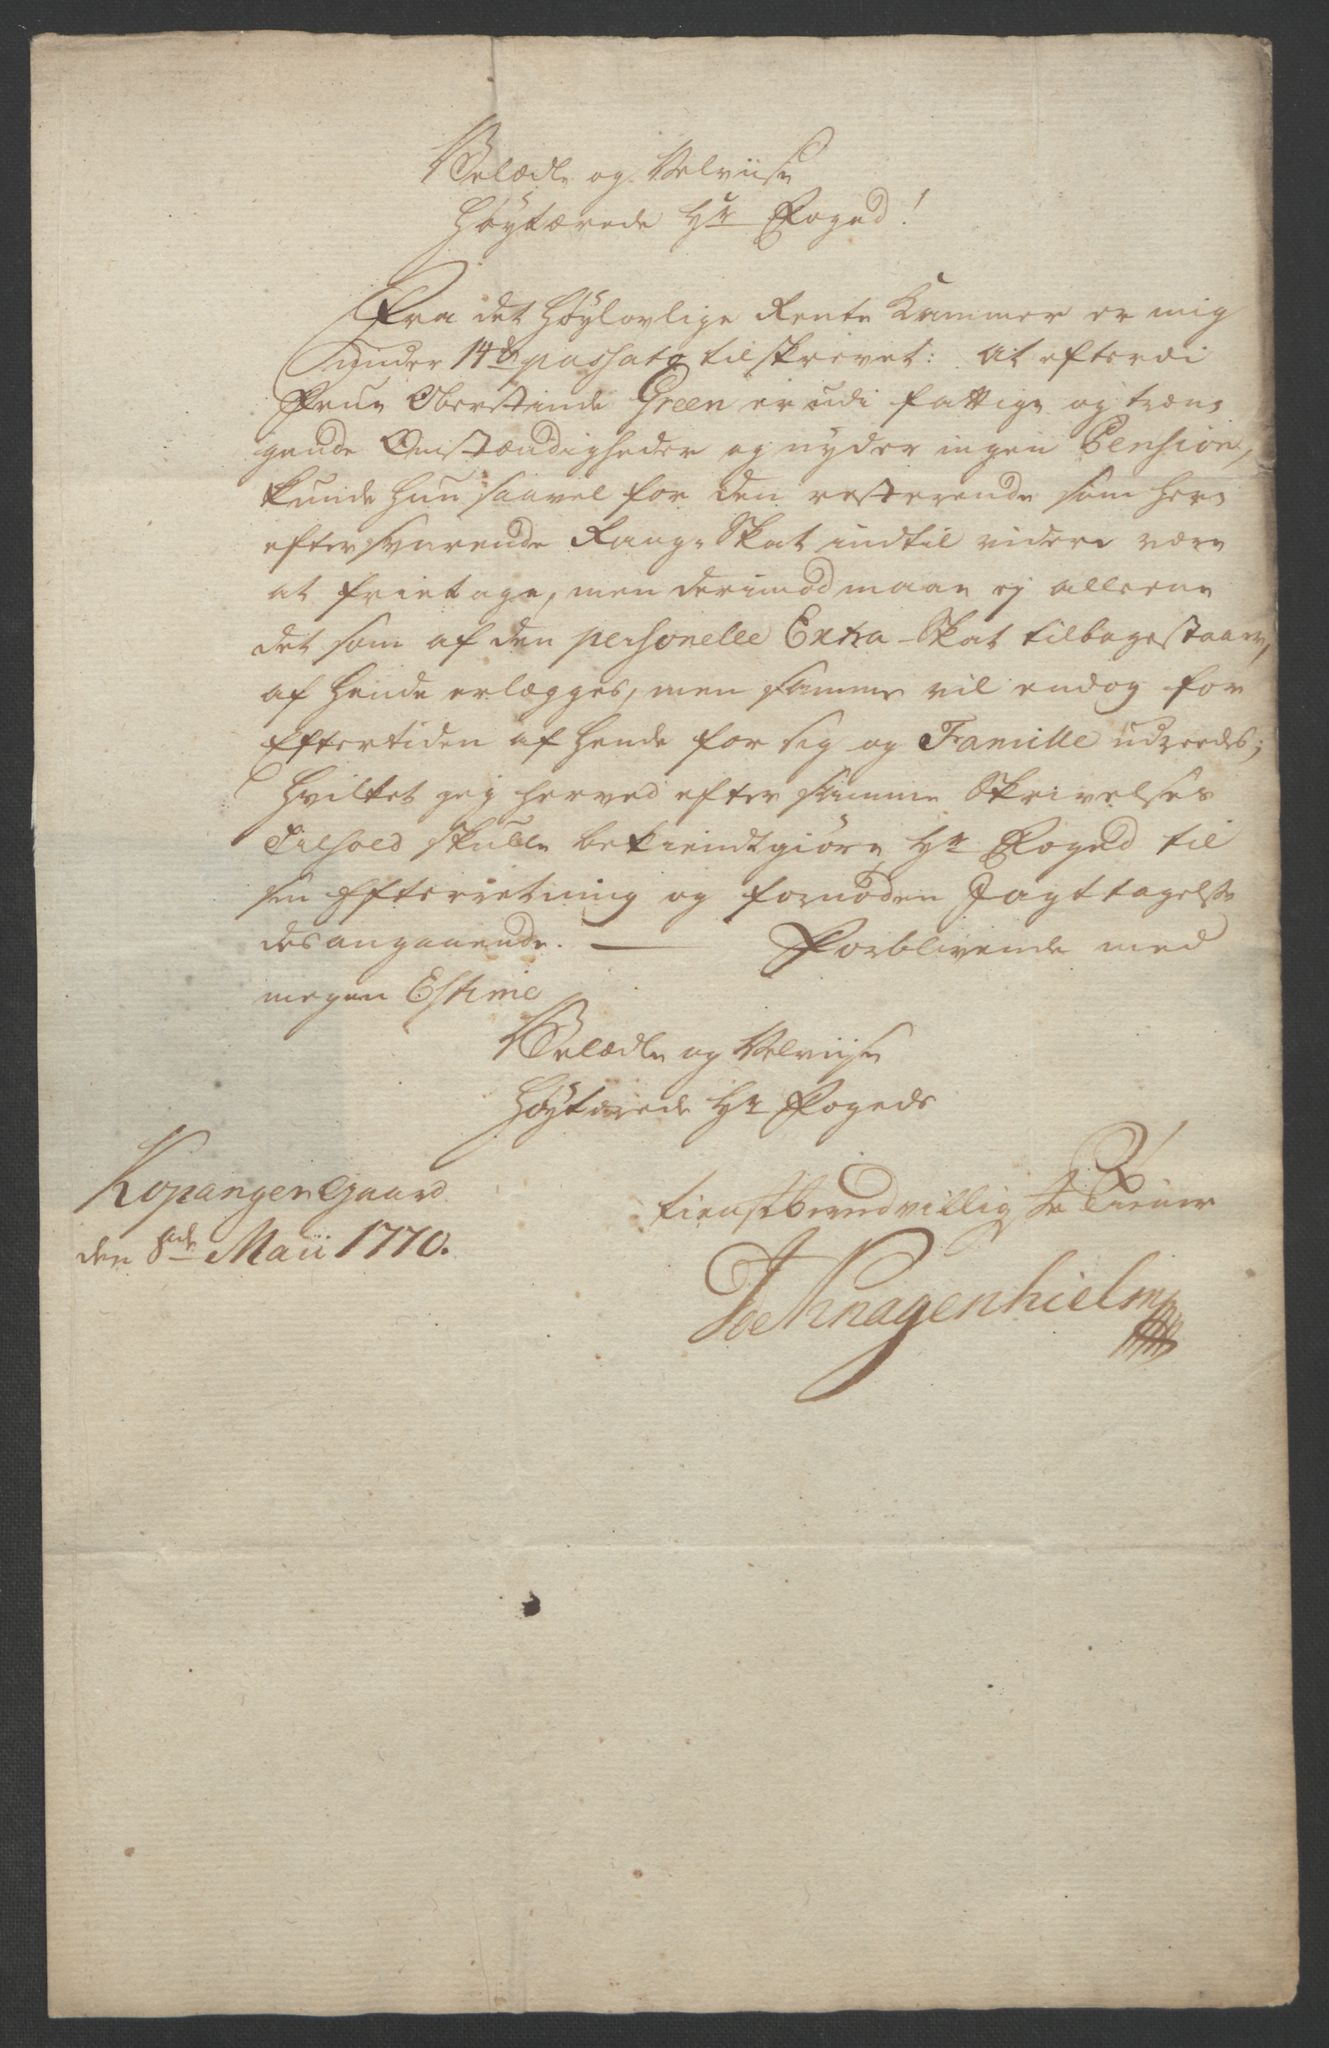 Velædle og Velviise
Høytærede Hr Foged!
Fra det Høylovlige Rente Kammer er mig
under 14de passato tilskrevet: At efterdi
Frue Oberstinde Green er udi fattige og træn-
gende Omstændigheder og nyder ingen Pension,
kunde hun saavel for den resterende som her-
efter svarende Rang-Skat indtil videre være
at frietage, men derimod maae ej alleene
det som af den personelle Extra-Skat tilbagestaaer,
af hende erlægges, men samme vil endog for
Eftertiden af hende for sig og Famille udreedes;
Hvilket jeg herved efter samme Skrivelses
Tilhold skulle bekiendtgiøre Hr Foged til
sin Efterretning og fornøden Jagttagelse
desangaaende. — Forblivende med
megen Estime
Velædle og Velviise
Høytærede Hr Fogeds
Kopanger Gaard
den 8de Maii 1770.
tienstberedvilligste Tiener
Knagenhielm